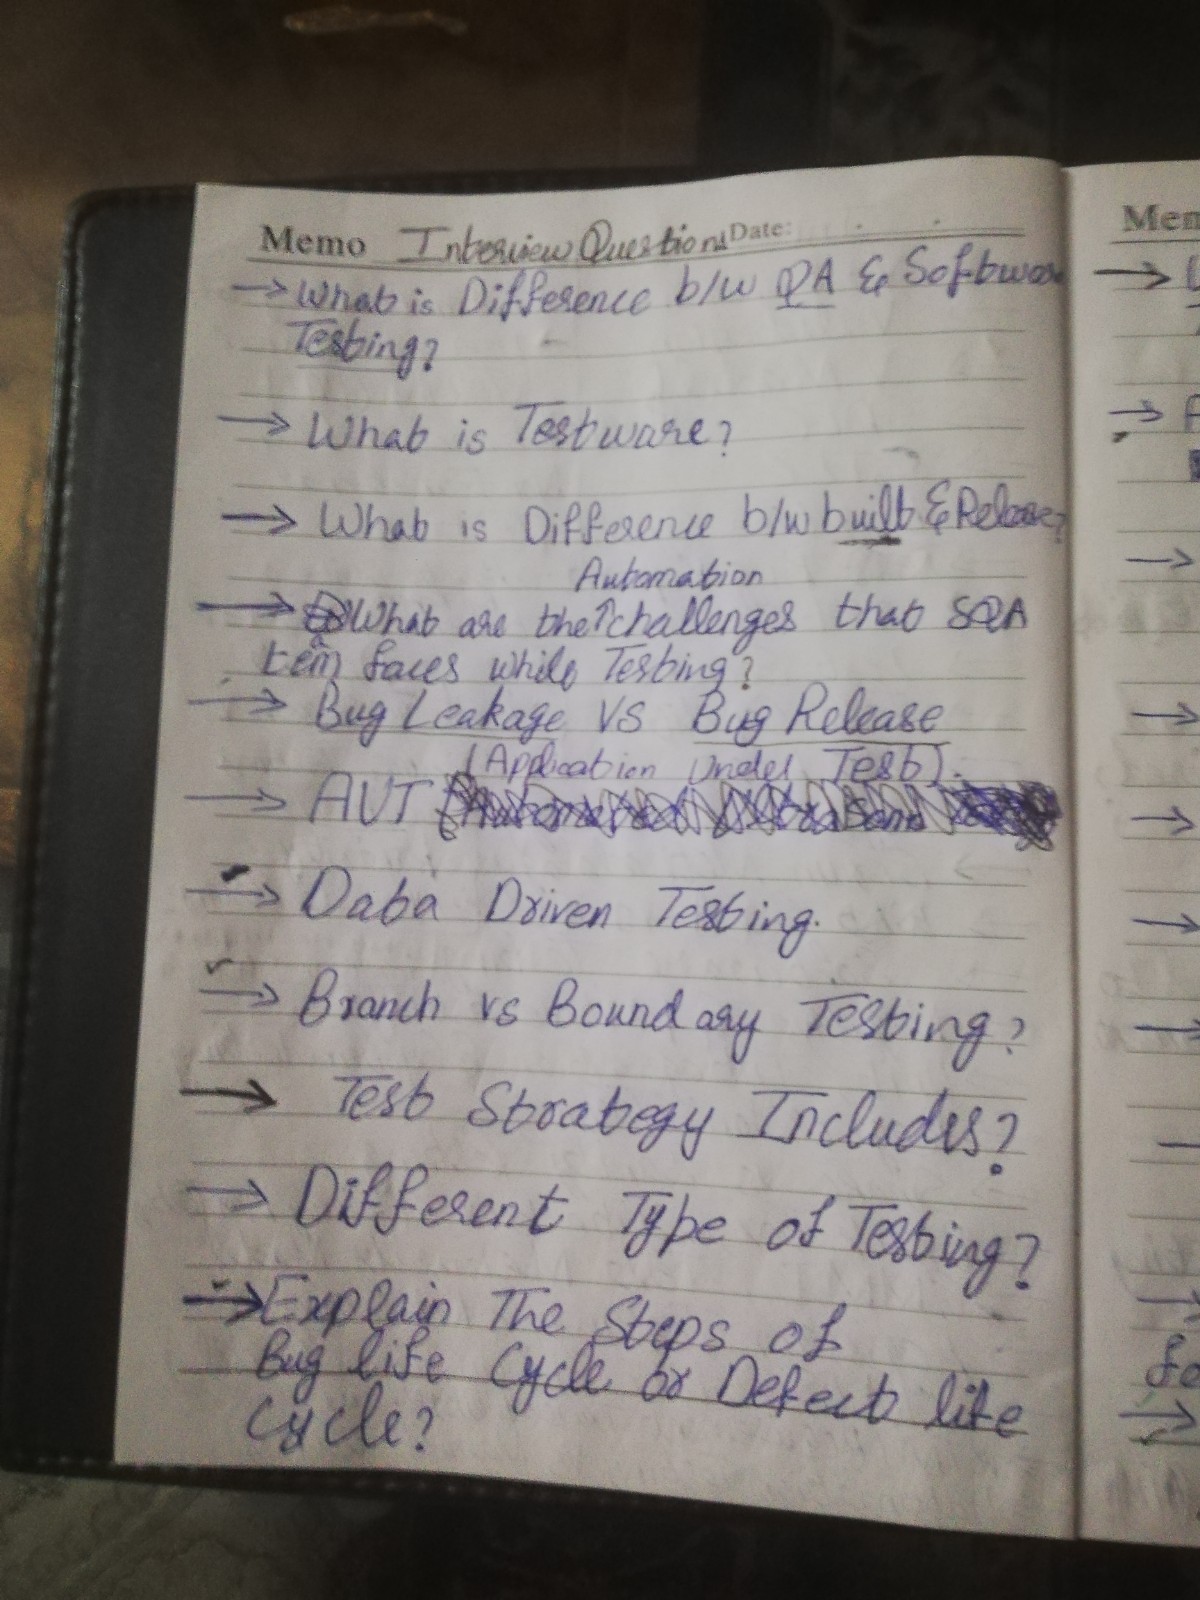 Memo Interview Questions Date:
→ What is Difference b/w QA & Software
Testing?
→ What is Testware?
→ What is Difference b/w built & Release?
Automation
→ What are the ↑ challenges that SQA
team faces while Testing?
→ Bug Leakage VS Bug Release
(Application Under Test).
→ AUT
→ Data Driven Testing.
→ Branch vs Boundary Testing?
→ Test Strategy Includes?
→ Different Type of Testing?
→ Explain The Steps of
Bug life Cycle or Defect life
Cycle?